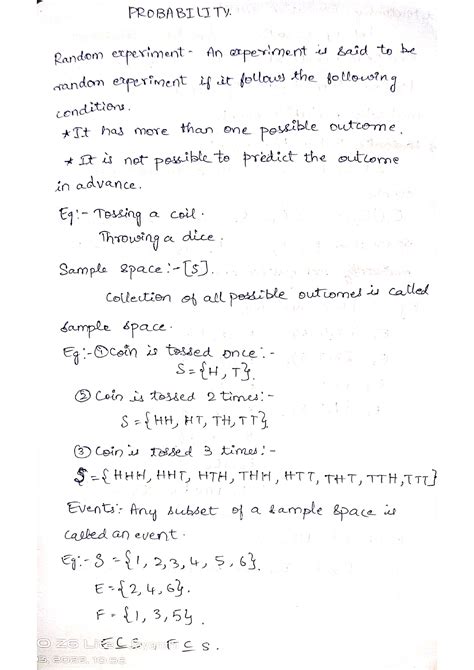 PROBABILITY.
Random experiment - An experiment is said to be
random experiment if it follows the following
conditions.
* It has more than one possible outcome.
* It is not possible to predict the outcome
in advance.
Eg:- Tossing a coil.
Throwing a dice.
Sample space:- [S].
Collection of all possible outcomes is called
sample space.
Eg:- ① Coin is tossed once:-
S={H, T}.
② Coin is tossed 2 times:-
S={HH, HT, TH, TT}
③ Coin is tossed 3 times:-
S={HHH, HHT, HTH, THH, HTT, THT, TTH, TTT}
Events:- Any subset of a sample space is
called an event.
Eg:- S={1, 2, 3, 4, 5, 6}.
E={2, 4, 6}.
F={1, 3, 5}
E⊆S F⊆S.